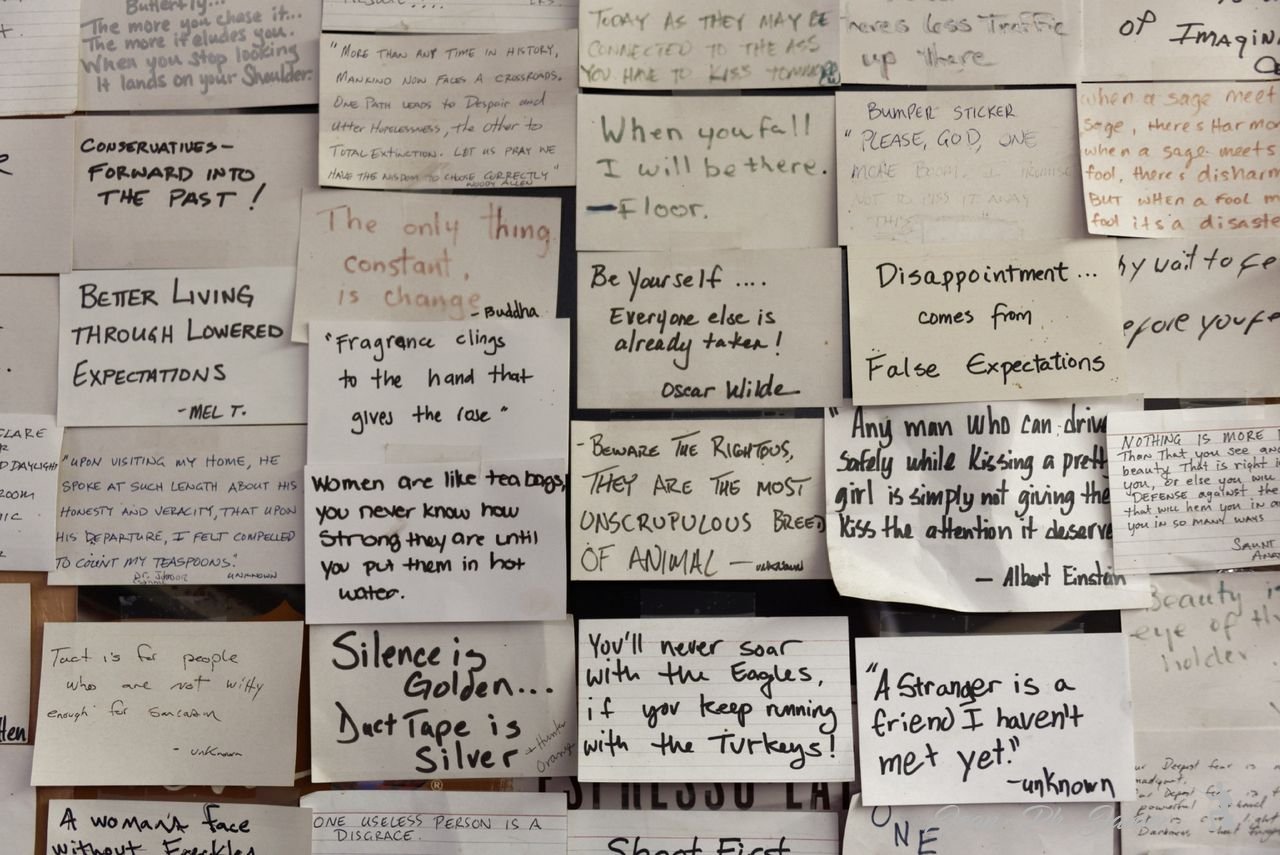 Butterfly...
The more you chase it...
The more it eludes you.
When you stop looking
It lands on your Shoulder.
TODAY AS THEY MAY BE
CONNECTED TO THE ASS
YOU HAVE TO KISS TOMORROW
there's less Traffic
up there
OF IMAGIN
"MORE THAN ANY TIME IN HISTORY,
MANKIND NOW FACES A CROSSROADS.
ONE PATH LEADS to Despair and
utter Hopelessness, the other to
TOTAL EXTINCTION. LET US PRAY WE
HAVE THE WISDOM TO CHOOSE CORRECTLY"
WOODY ALLEN
CONSERVATIVES-
FORWARD INTO
THE PAST!
When you fall
I will be there.
-Floor.
BUMPER STICKER
"PLEASE, GOD, ONE
MORE BOOM. I PROMISE
NOT TO PISS IT AWAY
THIS
when a sage meet
sage, there's Harmo
when a sage meets
fool, there's disharm
BUT when a fool m
fool its a disaste
The only thing
constant,
is change
-Buddha
BETTER LIVING
THROUGH LOWERED
EXPECTATIONS
-MEL T.
"Fragrance clings
to the hand that
gives the rose"
Be Yourself ....
Everyone else is
already taken!
Oscar Wilde
Disappointment...
comes from
False Expectations
hy wait to fe
efore you fe
CLARE
DAYLIGHT
ROOM
"UPON VISITING MY HOME, HE
SPOKE AT SUCH LENGTH ABOUT HIS
HONESTY AND VERACITY, THAT UPON
HIS DEPARTURE, I FELT COMPELLED
TO COUNT MY TEASPOONS."
UNKNOWN
Women are like tea bags,
you never know how
Strong they are until
you put them in hot
water.
-BEWARE THE RIGHTOUS,
THEY ARE THE MOST
UNSCRUPULOUS BREED
OF ANIMAL - unknown
"Any man who can driv
safely while kissing a prett
girl is simply not giving the
kiss the attention it deserve
- Albert Einstein
NOTHING IS MORE I
Than That you see and
beauty That is right i
you, or else you will
DEFENSE against the
that will hem you in a
you in so many ways
SAUNT
Tact is for people
who are not witty
enough for sarcasm
- unknown
Silence is
Golden...
Duct Tape is
Silver
You'll never soar
with the Eagles,
if you keep running
with the Turkeys!
"A Stranger is a
friend I haven't
met yet."
-unknown
Beauty i
eye of th
holder
ur Deepest fear is
A woman's face
without Freckles
ONE USELESS PERSON IS A
DISGRACE.
ESPRESSO
Shoot First
ONE